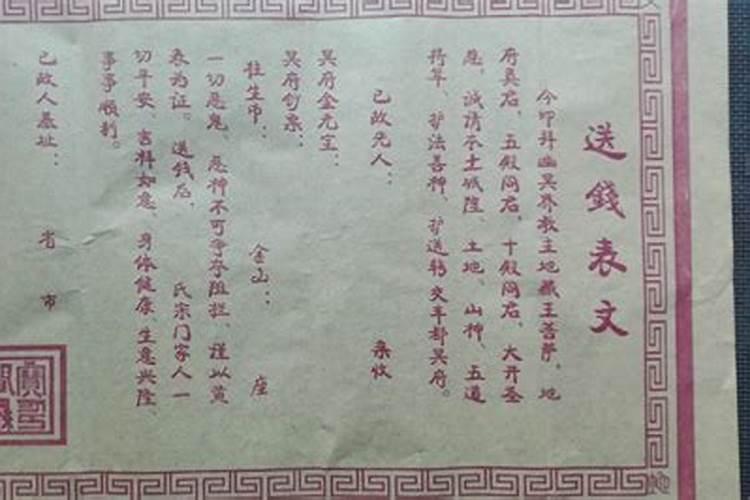 送錢表文
今叩拜幽冥界教主地藏王菩萨、地
府真君、五殿阎君、十殿阎君、大开圣
恩。诚请本土城隍、土地、山神、五道
将军、护法善神、护送转交丰都冥府。
已故先人： 亲收
冥府金元宝：
冥府钞票：
往生币： 金山： 座
一切恶鬼、恶神不可争夺阻拦、谨以黄
表为证。送钱后、 氏宗门家人一
切平安、吉祥如意、身体健康、生意兴隆、
事事顺利。
已故人墓址： 省 市